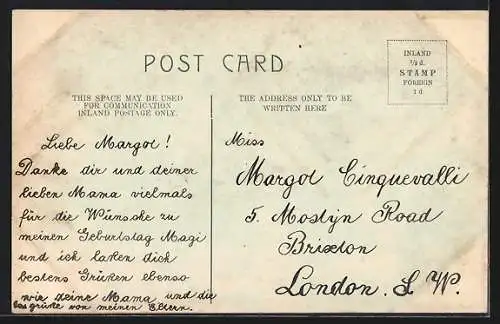 POST CARD
INLAND
½ d.
STAMP
FOREIGN
1 d
THIS SPACE MAY BE USED
FOR COMMUNICATION
INLAND POSTAGE ONLY.
THE ADDRESS ONLY TO BE
WRITTEN HERE
Liebe Margot!
Danke dir und deiner
lieben Mama vielmals
für die Wünsche zu
meinen Geburtstag Magi
und ich laßen dich
bestens Grüßen ebenso
wie deine Mama und die
das grüße von meinen Eltern.
Miss
Margot Cinquevalli
5. Mostyn Road
Brixton
London. S. W.